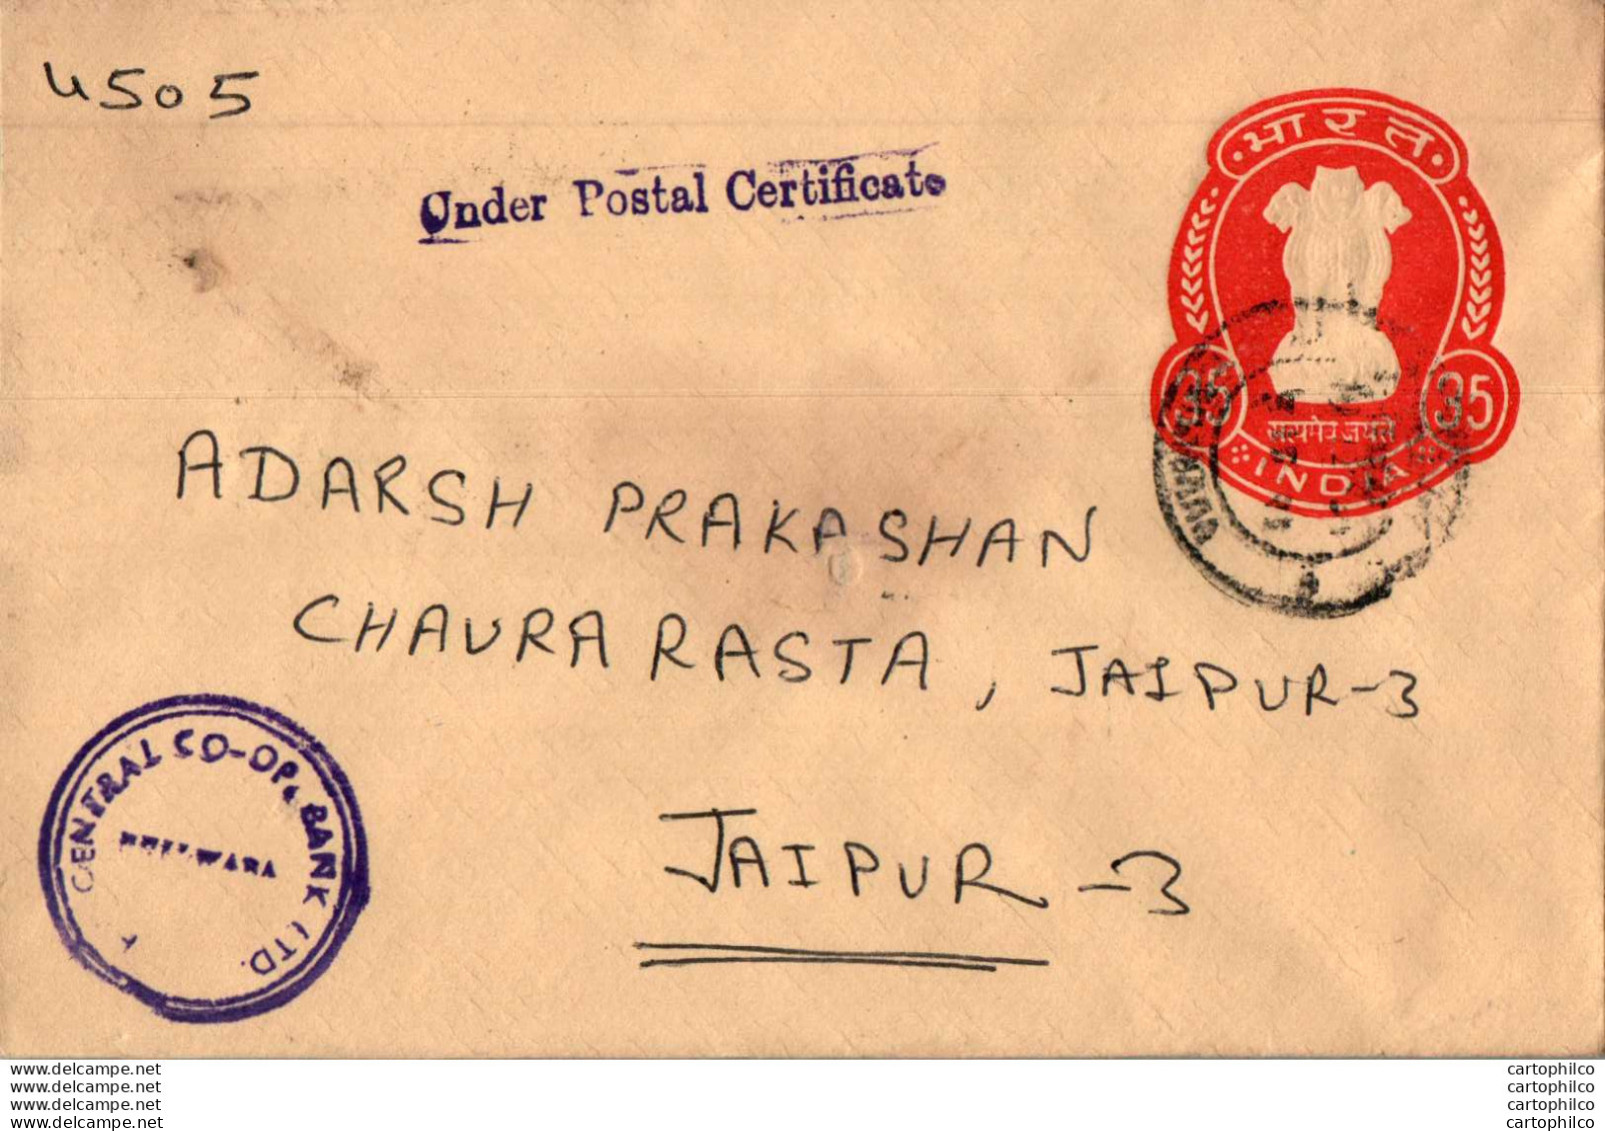 4505
Under Postal Certificate
भारत
35 35
सत्यमेव जयते
INDIA
ADARSH PRAKASHAN
CHAURA RASTA, JAIPUR-3
JAIPUR-3
CENTRAL CO-OP. BANK LTD.
www.delcampe.net
www.delcampe.net
www.delcampe.net
www.delcampe.net
cartophilco
cartophilco
cartophilco
cartophilco